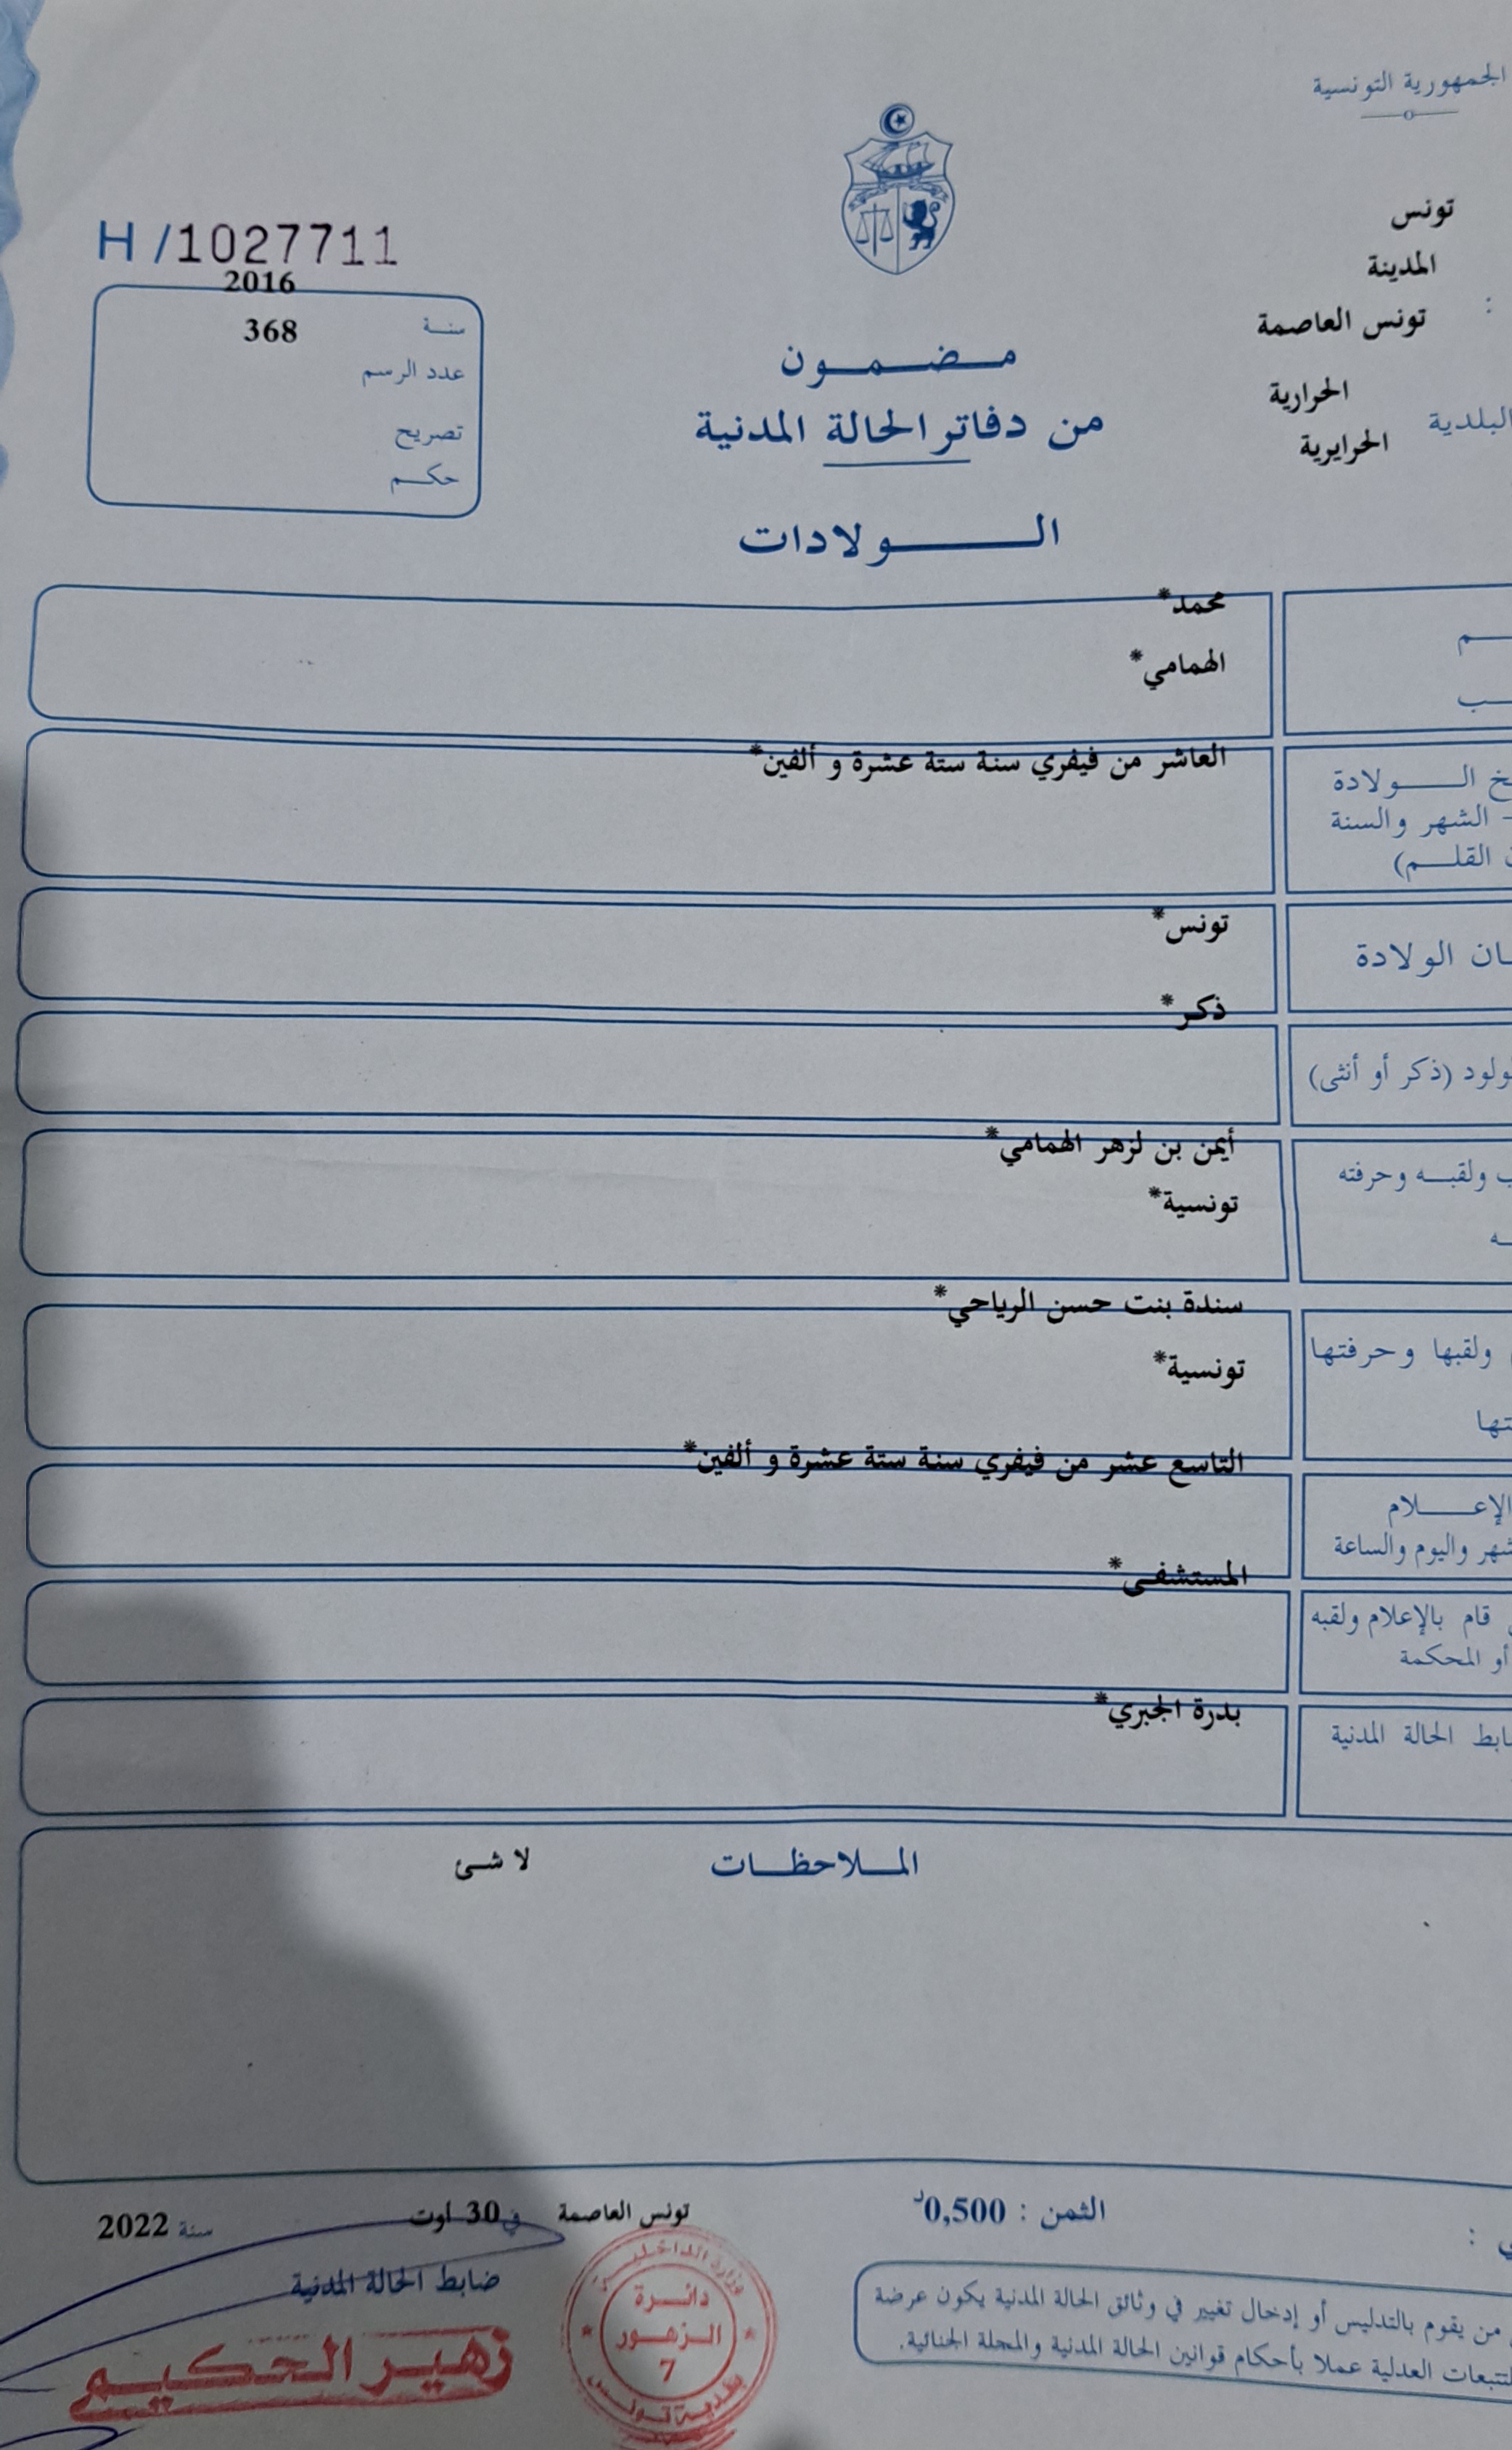 الجمهورية التونسية
تونس
المدينة
تونس العاصمة
:
الحرارية
البلدية
الحرايرية
H /1027711
2016
سنة
368
عدد الرسم
تصريح
حكم
مضمون
من دفاتر الحالة المدنية
الولادات
محمد*
الهمامي*
العاشر من فيفري سنة ستة عشرة و ألفين*
الولادة
- الشهر والسنة
القلم)
تونس*
الولادة
ذكر*
(ذكر أو أنثى)
أيمن بن لزهر الهمامي*
ولقبه وحرفته
تونسية*
سندة بنت حسن الرياحي*
ولقبها وحرفتها
تونسية*
التاسع عشر من فيفري سنة ستة عشرة و ألفين*
الإعلام
واليوم والساعة
المستشفى*
قام بالإعلام ولقبه
أو المحكمة
بدرة الجبري*
الحالة المدنية
الملاحظات
لا شئ
الثمن : 0,500د
تونس العاصمة في 30 اوت سنة 2022
ضابط الحالة المدنية
زهير الحكيم
وزارة الداخلية
دائرة
الزهور
7
بلدية تونس
من يقوم بالتدليس أو إدخال تغيير في وثائق الحالة المدنية يكون عرضة
للتتبعات العدلية عملا بأحكام قوانين الحالة المدنية والمجلة الجنائية.